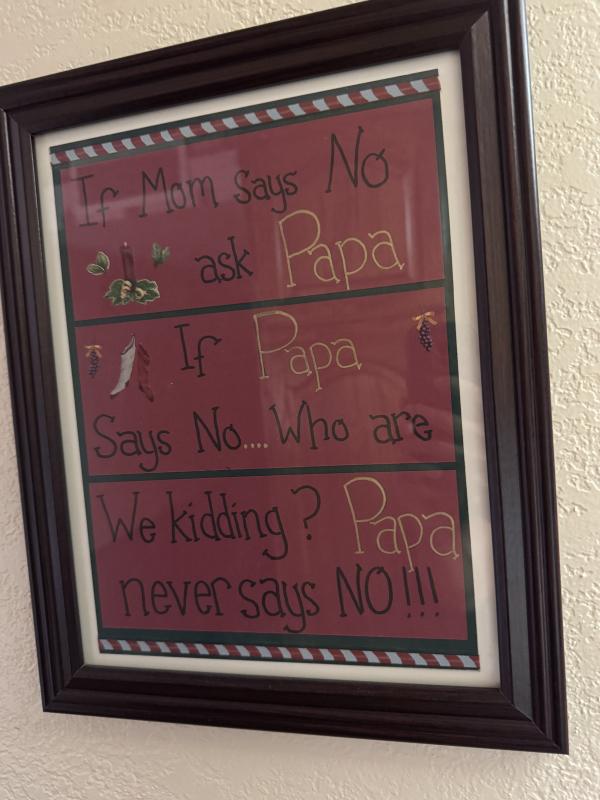 If Mom Says No
ask Papa
If Papa
Says No....Who are
We kidding? Papa
never says NO!!!